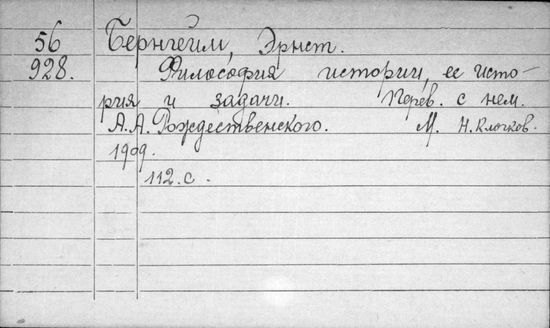 56 Бернгейм, Эрнст.
928. Философия истории, ее исто-
рия и задачи. Перев. с нем.
А.А. Рождественского. М. Н. Клочков.
1909.
112.с.